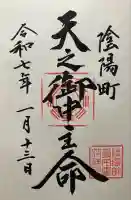 陰陽町
天之御中主命
令和七年 一月十三日